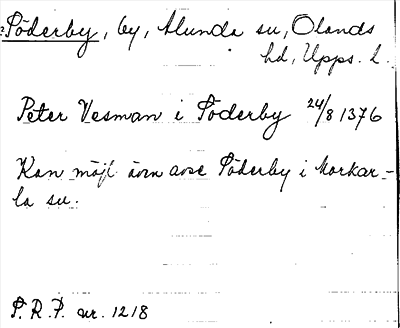 ? Söderby, by, Alunda sn, Olands
hd, Upps. l.
Peter Vesman i Söderby 24/8 1376
Kan möjl även avse Söderby i Morkar-
la sn.
S. R. P. nr. 1218